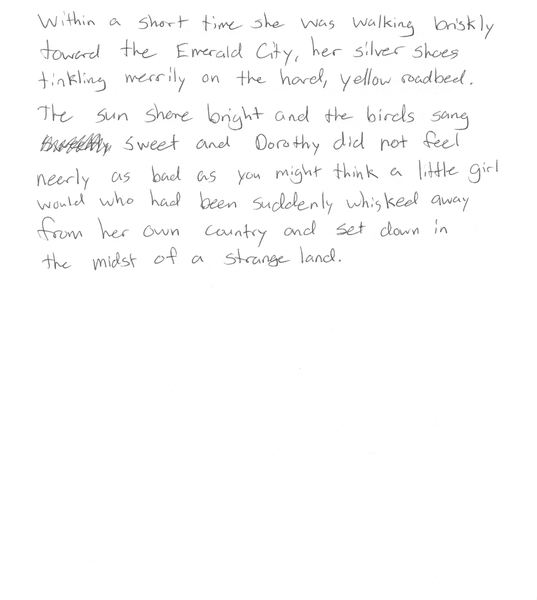 Within a short time she was walking briskly
toward the Emerald City, her silver shoes
tinkling merrily on the hard, yellow roadbed.
The sun shone bright and the birds sang
sweet and Dorothy did not feel
neerly as bad as you might think a little girl
would who had been suddenly whisked away
from her own country and set down in
the midst of a strange land.